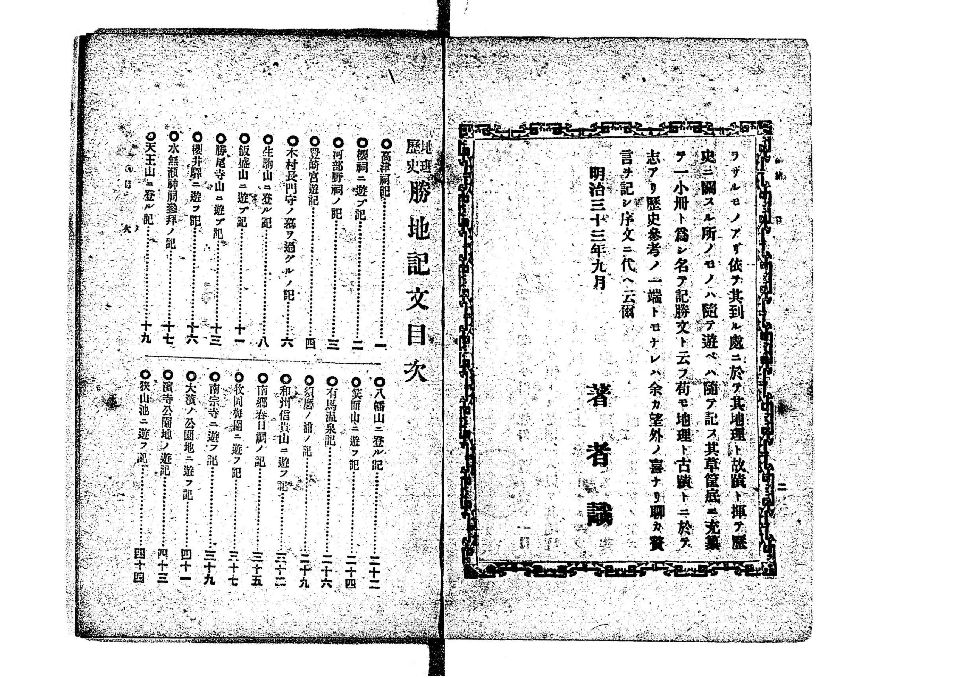 ラザルモノアリ依テ其到ル處ニ於テ其地理ト故蹟ト揮テ歷
史ニ關スル所ノモノハ隨テ遊ベハ隨テ記ス其草筐底ニ充
テ一小册ト爲シ名テ記勝文ト云フ苟モ地理ト古蹟トニ於テ
志アリ歷史參考ノ一端トモナレハ余カ望外ノ喜ナリ聊カ贅
言ヲ記シ序文ニ代ヘ云爾
明治三十三年九月
著者識
地理歷史勝地記文目次
高津祠記 一
櫻祠ニ遊ブ記 二
河部野祠ノ記 三
豐崎宮遊記 四
木村長門守ノ墓ヲ過グルノ記 六
生駒山ニ登ル記 八
飯盛山ニ遊ブ記 十一
勝尾寺山ニ遊ブ記 十三
櫻井驛ニ遊ブ記 十六
水無瀨神祠參拜ノ記 十七
天王山ニ登ル記 十九
八幡山ニ登ル記 二十二
箕面山ニ遊フ記 二十四
有馬溫泉記 二十六
須磨ノ浦ノ記 二十九
和州信貴山ニ遊フ記 三十二
南鄉春日祠ノ記 三十五
牧岡梅園ニ遊フ記 三十七
南宗寺ニ遊フ記 三十九
大濱ノ公園地ニ遊フ記 四十一
濱寺公園地ノ遊記 四十三
狹山池ニ遊フ記 四十四